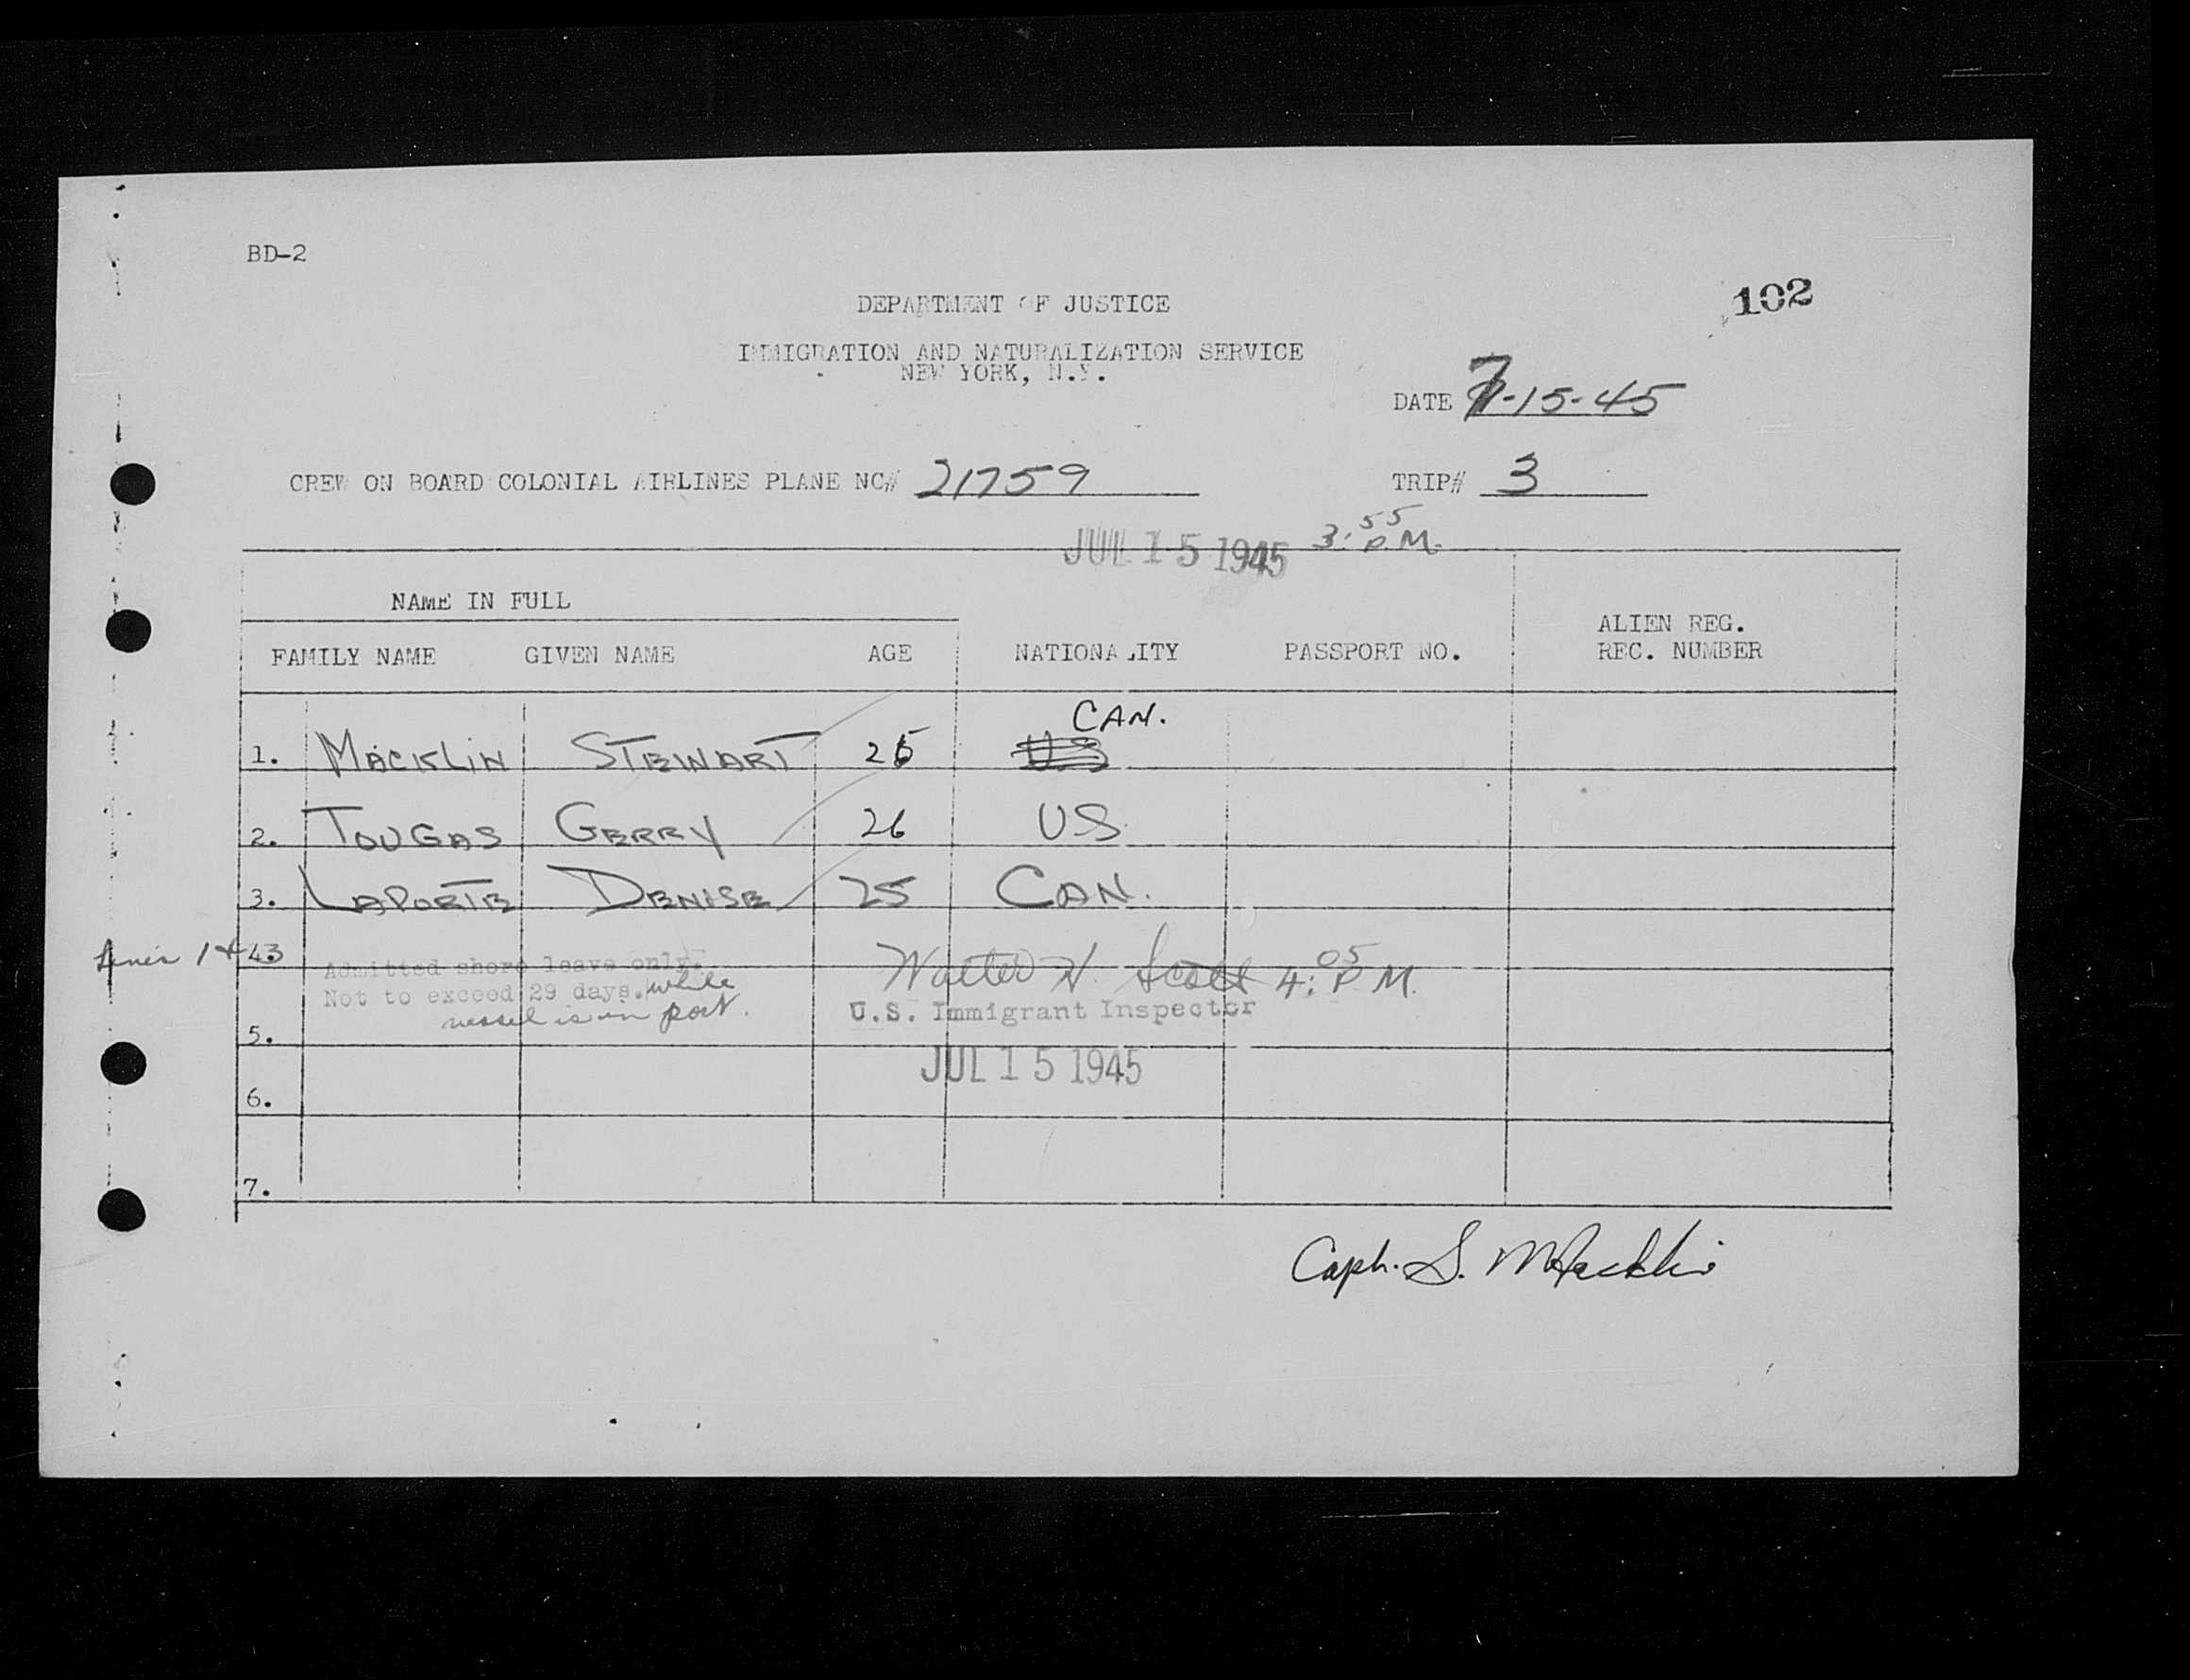 BD-2
102
DEPARTMENT OF JUSTICE
IMMIGRATION AND NATURALIZATION SERVICE
NEW YORK, N.Y.
DATE 7-15-45
CREW ON BOARD COLONIAL AIRLINES PLANE NC# 21759 TRIP# 3
JUL 15 1945 3:55 P.M.
NAME IN FULL
FAMILY NAME GIVEN NAME AGE NATIONALITY PASSPORT NO. ALIEN REG. REC. NUMBER
CAN.
1. MACKLIN STEWART 25 US
2. TOUGAS GERRY 26 US
3. LAPORTE DENISE 25 CAN.
1 + 3 4. Admitted shore leave only. Walter H. Scott 4:05 P.M.
Not to exceed 29 days. while
vessel is in port. U.S. Immigrant Inspector
5.
JUL 15 1945
6.
7.
Capt. S. Macklin